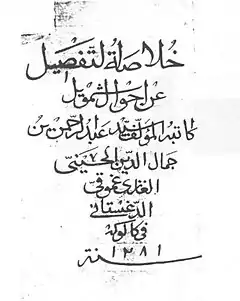 خلاصة التفصيل
عن احوال شمويل
كاتبه المؤلف سيد عبد الرحمن بن
جمال الدين الحسيني
الغازي غموقي
الدغستاني
في كالوكه
سنة ١٢٨١